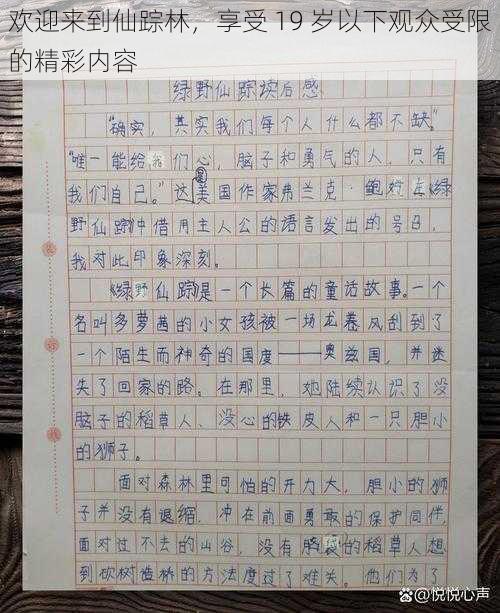 欢迎来到仙踪林，享受 19 岁以下观众受限
的精彩内容
绿野仙踪读后感
“确实，其实我们每个人什么都不缺。”
“唯一能给我们心，脑子和勇气的人，只有
我们自己。”这是美国作家弗兰克·鲍姆在《绿
野仙踪》中借用主人公的语言发出的号召，
我对此印象深刻。
《绿野仙踪》是一个长篇的童话故事。一个
名叫多萝茜的小女孩被一场龙卷风刮到了
一个陌生而神奇的国度——奥兹国，并迷
失了回家的路。在那里，她陆续认识了没
脑子的稻草人、没心的铁皮人和一只胆小
的狮子。
面对森林里可怕的开力大，胆小的狮
子并没有退缩，冲在前面勇敢的保护同伴，
面对过不去的山谷，没有脑袋的稻草人想
到砍树造桥的方法度过了难关。他们为了
@悦悦心声